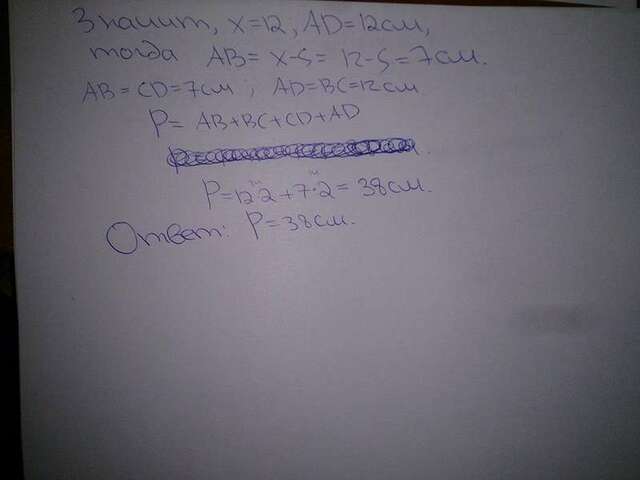 Значит, x=12, AD=12см,
тогда AB= x-5= 12-5=7см.
AB=CD=7см; AD=BC=12см
P= AB+BC+CD+AD
P=12·2+7·2=38см.
Ответ: P=38см.